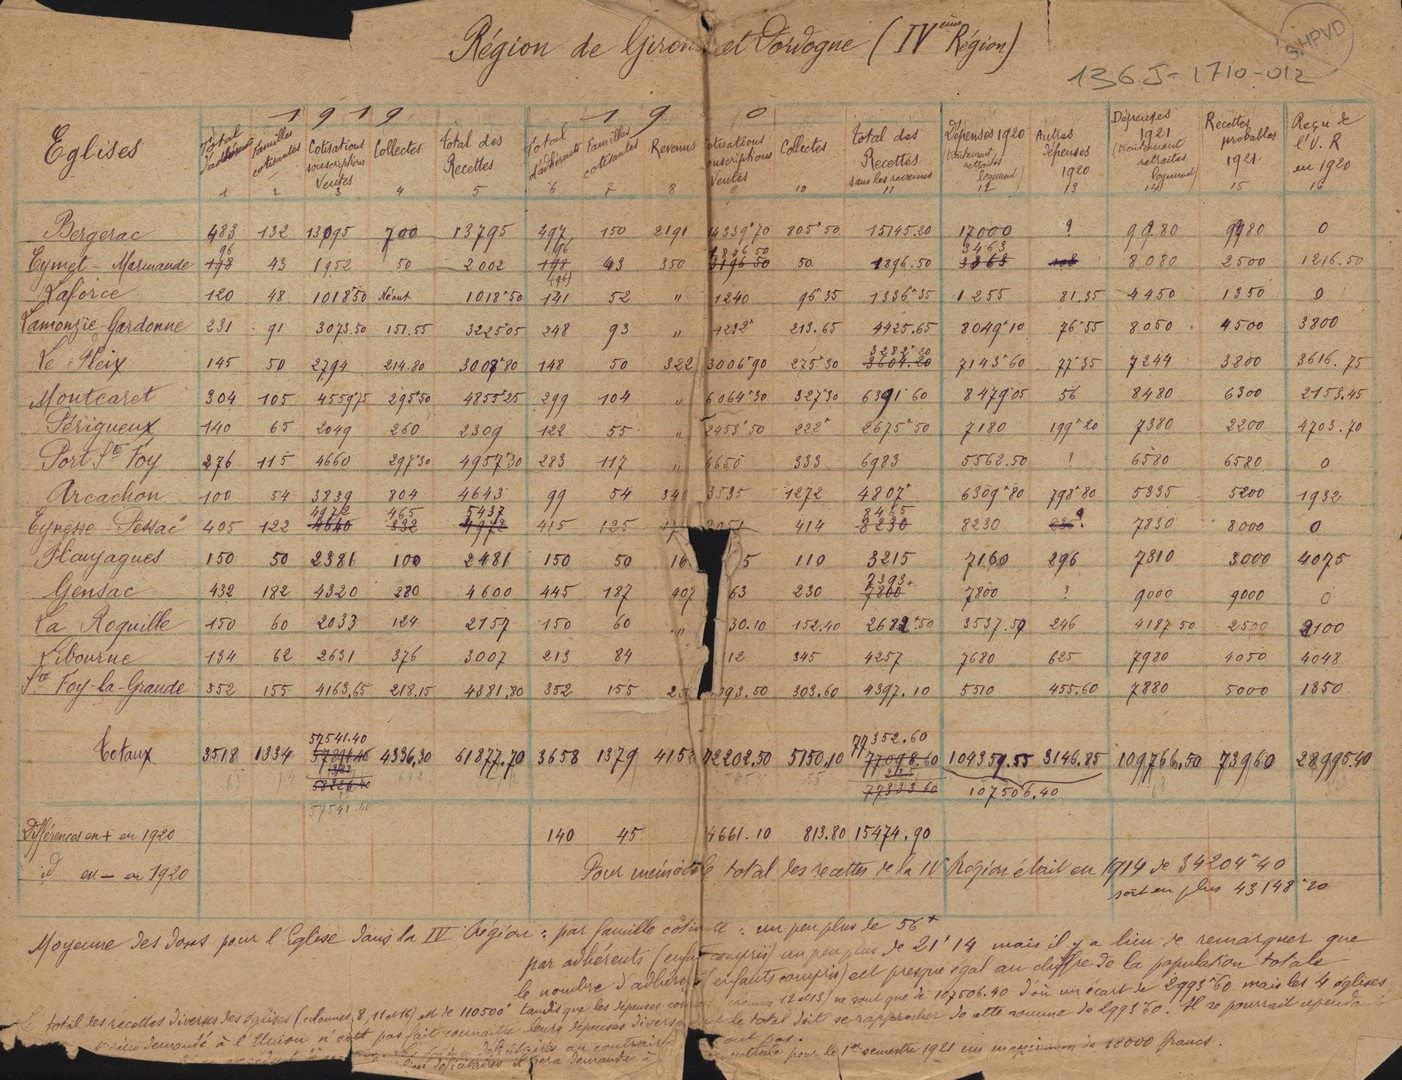 Région de Gironde et Dordogne (IVème Région)
SHPVD
136 J - 1710-012
1919 19 0
Eglises Total d'adhérents Familles cotisantes Cotisations souscriptions Ventes Collectes Total des Recettes Total d'adhérents Familles cotisantes Revenus Cotisations souscriptions Ventes Collectes Total des Recettes sans les revenus Dépenses 1920 (traitement retraites logement) Autres dépenses 1920 Dépenses 1921 (traitement retraites logement) Recettes probables 1921 Reçu de l'U.R en 1920
1 2 3 4 5 6 7 8 9 10 11 12 13 14 15 16
Bergerac 483 132 13095 700 13795 497 150 2191 4339.70 805.50 15145.20 17000 ? 9980 9980 0
96 96 1826.50 3463
Eymet - Marmande 198 43 1952 50 2002 198 43 350 50 1896.50 3363 8.080 2500 1216.50
(96)
Laforce 120 48 1018.50 Néant 1018.50 141 52 " 1240 96.35 1336.35 1255 81.35 4450 1350 0
Lamonzie-Gardonne 231 91 3073.50 151.55 3225.05 248 93 " 4212 213.65 4425.65 8049.10 76.55 8050 4500 3800
3282.20
Le Fleix 145 50 2794 214.80 3008.80 148 50 322 3006.90 275.30 3604.20 7143.60 77.35 7244 3800 3616.75
Montcaret 304 105 4559.75 295.50 4855.25 299 104 " 6064.30 327.30 6391.60 8479.05 56 8480 6300 2153.45
Périgueux 140 65 2049 260 2309 122 55 " 2453.50 222 2675.50 7180 199.20 7380 2200 4703.70
Port Ste Foy 276 115 4660 297.30 4957.30 283 117 " 6650 333 6983 5562.50 ? 6580 6580 0
Arcachon 100 54 3839 804 4643 99 54 340 3535 1272 4807 6309.80 798.80 5335 5200 1932
4972 465 5437 8465
Eynesse - Pessac 405 122 4640 332 4972 415 125 414 8230 8230 ? 7830 8000 0
Flaujagues 150 50 2381 100 2481 150 50 16 5 110 3215 7160 296 7310 3000 4075
7393
Gensac 432 182 4320 280 4600 445 187 907 63 230 7800 7800 ? 9000 9000 0
La Roquille 150 60 2033 124 2157 150 60 " 30.10 152.40 2682.50 3537.50 246 4187.50 2500 2100
Libourne 134 62 2631 376 3007 213 84 12 345 4257 7680 625 7980 4050 4048
Ste Foy-la-Grande 352 155 4163,65 218.15 4381,80 352 155 093.50 303.60 4397.10 5510 455.60 7880 5000 1350
57541.40 77352.60
Totaux 3518 1334 4336,30 61877.70 3658 1379 4158 72202.50 5150.10 77098.60 104359.55 3146.85 109766.50 73960 28995.40
58226.40 77333.60 107506.40
57541.40
Différences en + en 1920 140 45 4661.10 813.80 15474.90
id en - en 1920
Pour mémoire le total des recettes de la IV Région était en 1914 de 34204.40
soit en plus 43148.20
Moyenne des dons pour l'Eglise dans la IV Région : par famille cotisante : un peu plus de 56
par adhérents (enfants compris) un peu plus de 21.14 mais il y a lieu de remarquer que
le nombre d'adhérents (enfants compris) est presque égal au chiffre de la population totale
Le total des recettes diverses des Eglises (colonnes, 8, 11 et 16) est de 110500 tandis que les dépenses connues (colonnes 12 et 13) ne sont que de 107506.40 d'où un écart de 2993.60 mais les 4 églises
rien demandé à l'Union n'ont pas fait connaître leurs dépenses diverses et le total doit se rapprocher de cette somme de 2993.60. Il se pourrait cependant
au contraire ont pas.
déficitaires et sera demandé à centrale pour le 1er semestre 1921 un maximum de 18000 francs.